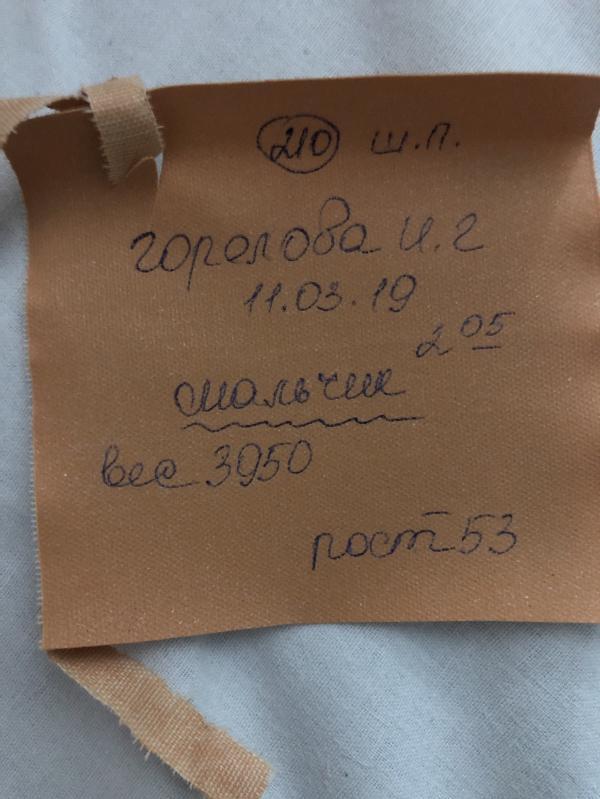 210 ш.п.
горолова И.г
11.03.19
2 05
мальчик
вес 3950
рост 53